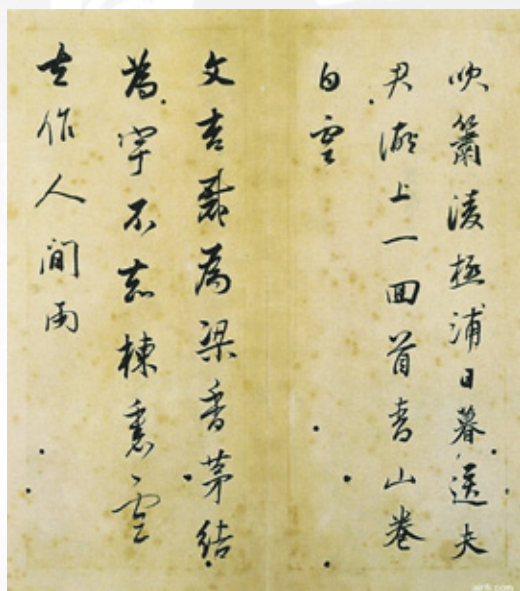 吹簫淩極浦日暮送夫
君湖上一回首青山卷
白雲
文杏裁為梁香茅結
為宇不知棟裏雲
去作人間雨